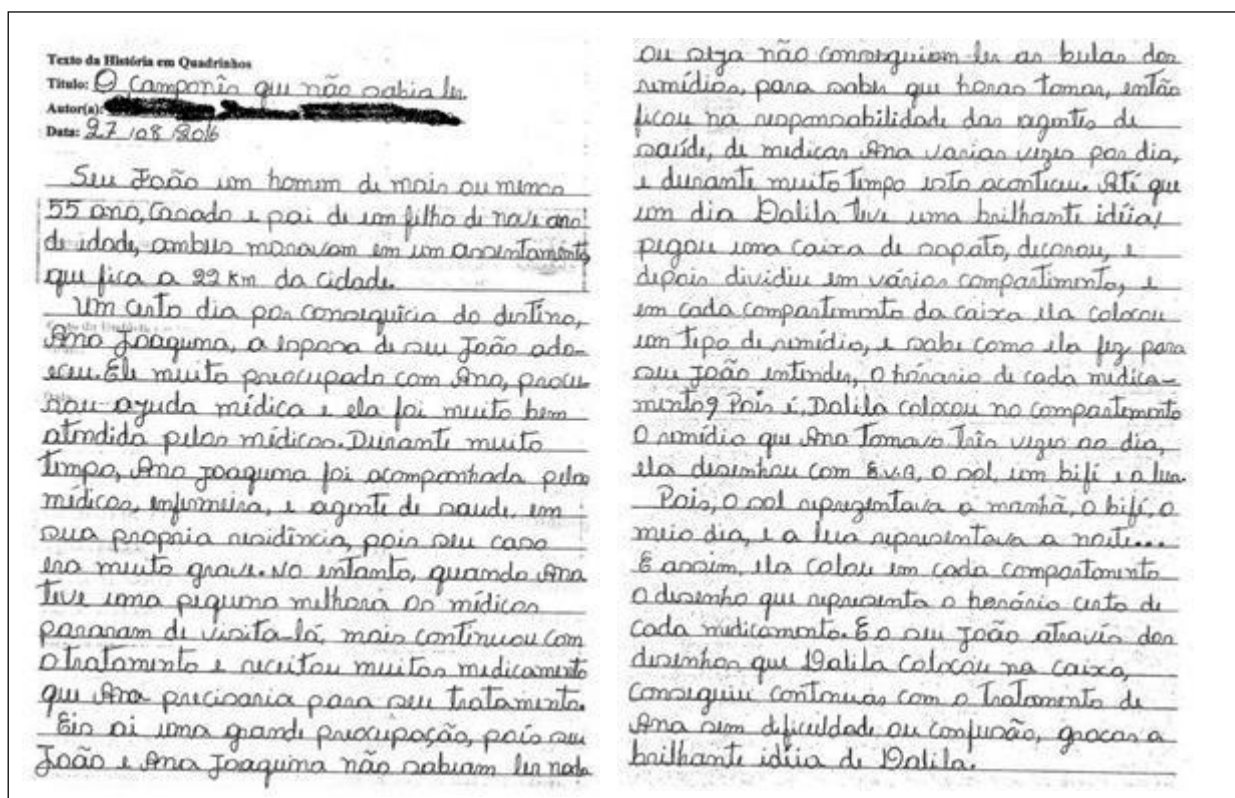 Texto da História em Quadrinhos
Título: O Camponês que não sabia ler.
Autor(a):
Data: 27/08/2016
Seu João um homem de mais ou menos
55 ano, casado e pai de um filho de nove ano
de idade, ambus moravam em um assentamento
que fica a 22 km da cidade.
Um certo dia por consequícia do destino,
Ana Joaquina, a esposa de seu João ado-
eceu. Ele muito preocupado com Ana, procu-
rou ajuda médica e ela foi muito bem
atendida pelos médicos. Durante muito
tempo, Ana Joaquina foi acompanhada pelos
médicos, enfermeira, e agente de saude, em
sua propria residência, pois seu caso
era muito grave. No entanto, quando Ana
teve uma piquena melhora os médicos
pararam de visita-lá, mais continuou com
o tratamento e receitou muitos medicamento
que Ana precisaria para seu tratamento.
Eis ai uma grande preocupação, pois seu
João e Ana Joaquina não sabiam ler nada
ou seja não conseguiam ler as bulas dos
remédios, para saber que horas tomar, então
ficou na responsabilidade das agentes de
saúde, de medicar Ana varias vezes por dia,
e durante muito tempo isto aconteceu. Até que
um dia Dalila teve uma brilhante idéia!
pegou uma caixa de sapato, decorou, e
depois dividiu em vários compartimento, e
em cada compartimento da caixa ela colocou
um tipo de remédio, e sabe como ela fez para
seu João entender, o hórario de cada medica-
mento? Pois é, Dalila colocou no compartemento
O remédio que Ana tomava três vezes ao dia,
ela desenhou com E.V.A, o sol, um bifé e a lua.
Pois, o sol reprezentava a manhã, o bifé, o
meio dia, e a lua representava a noite...
E assim, ela colou em cada compartomento
o desenho que representa o horário certo de
cada medicamento. E o seu João através dos
desenhos que Dalila colocou na caixa,
conseguiu continuas com o tratamento de
Ana sem dificuldade ou confusão, graças a
brilhante idéia de Dalila.